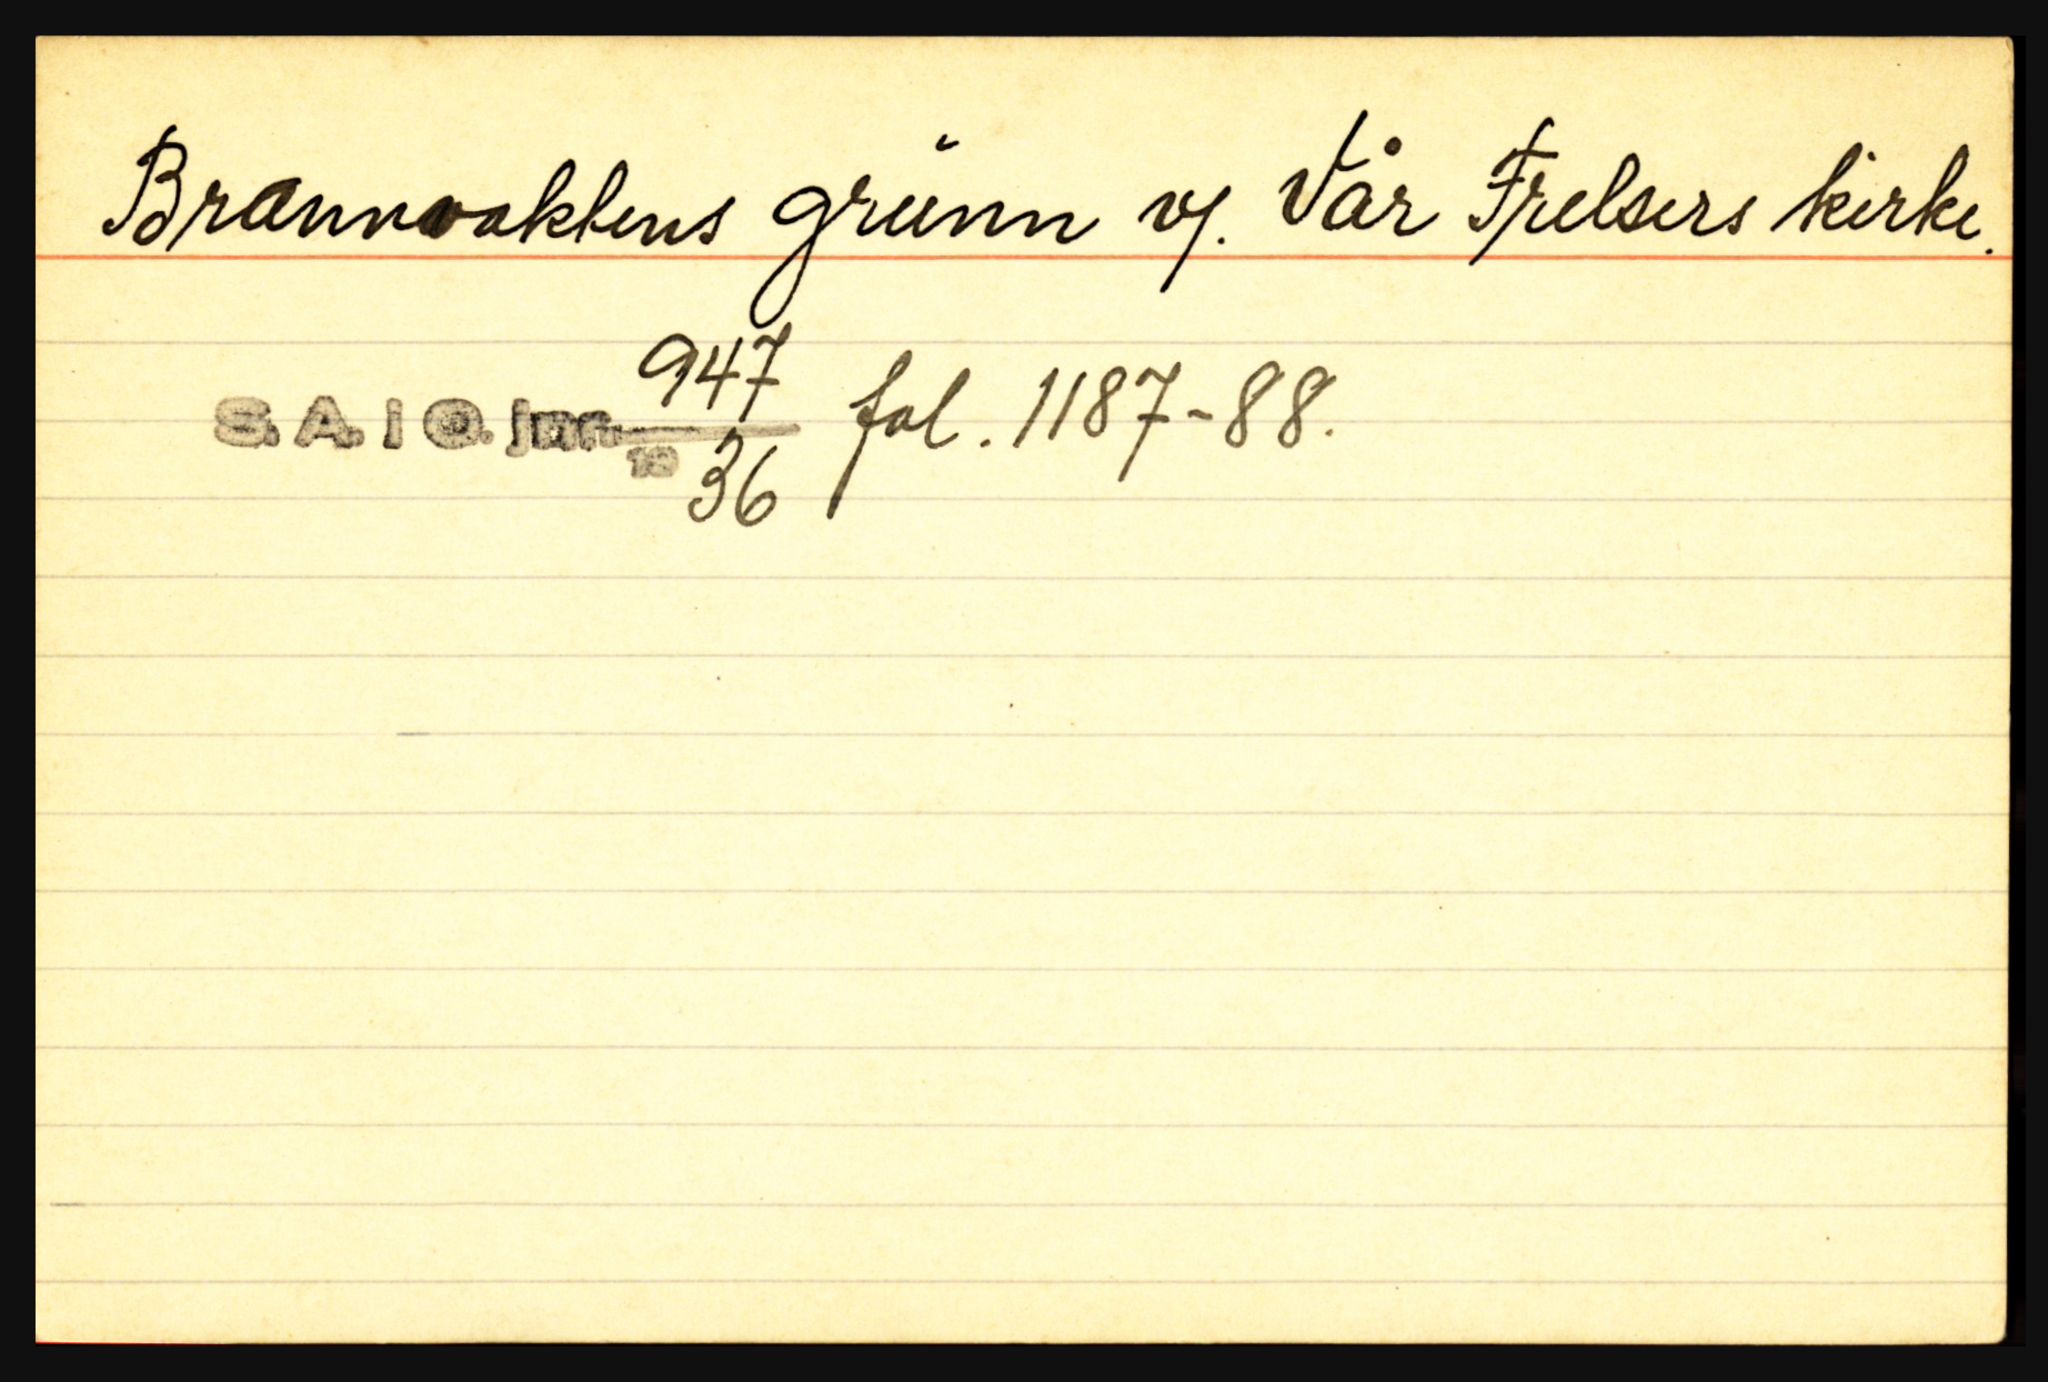 Brannvaktens grunn v/. Vår Frelsers kirke.
S. A. i O. jnr. 947/1936 fol. 1187-88.